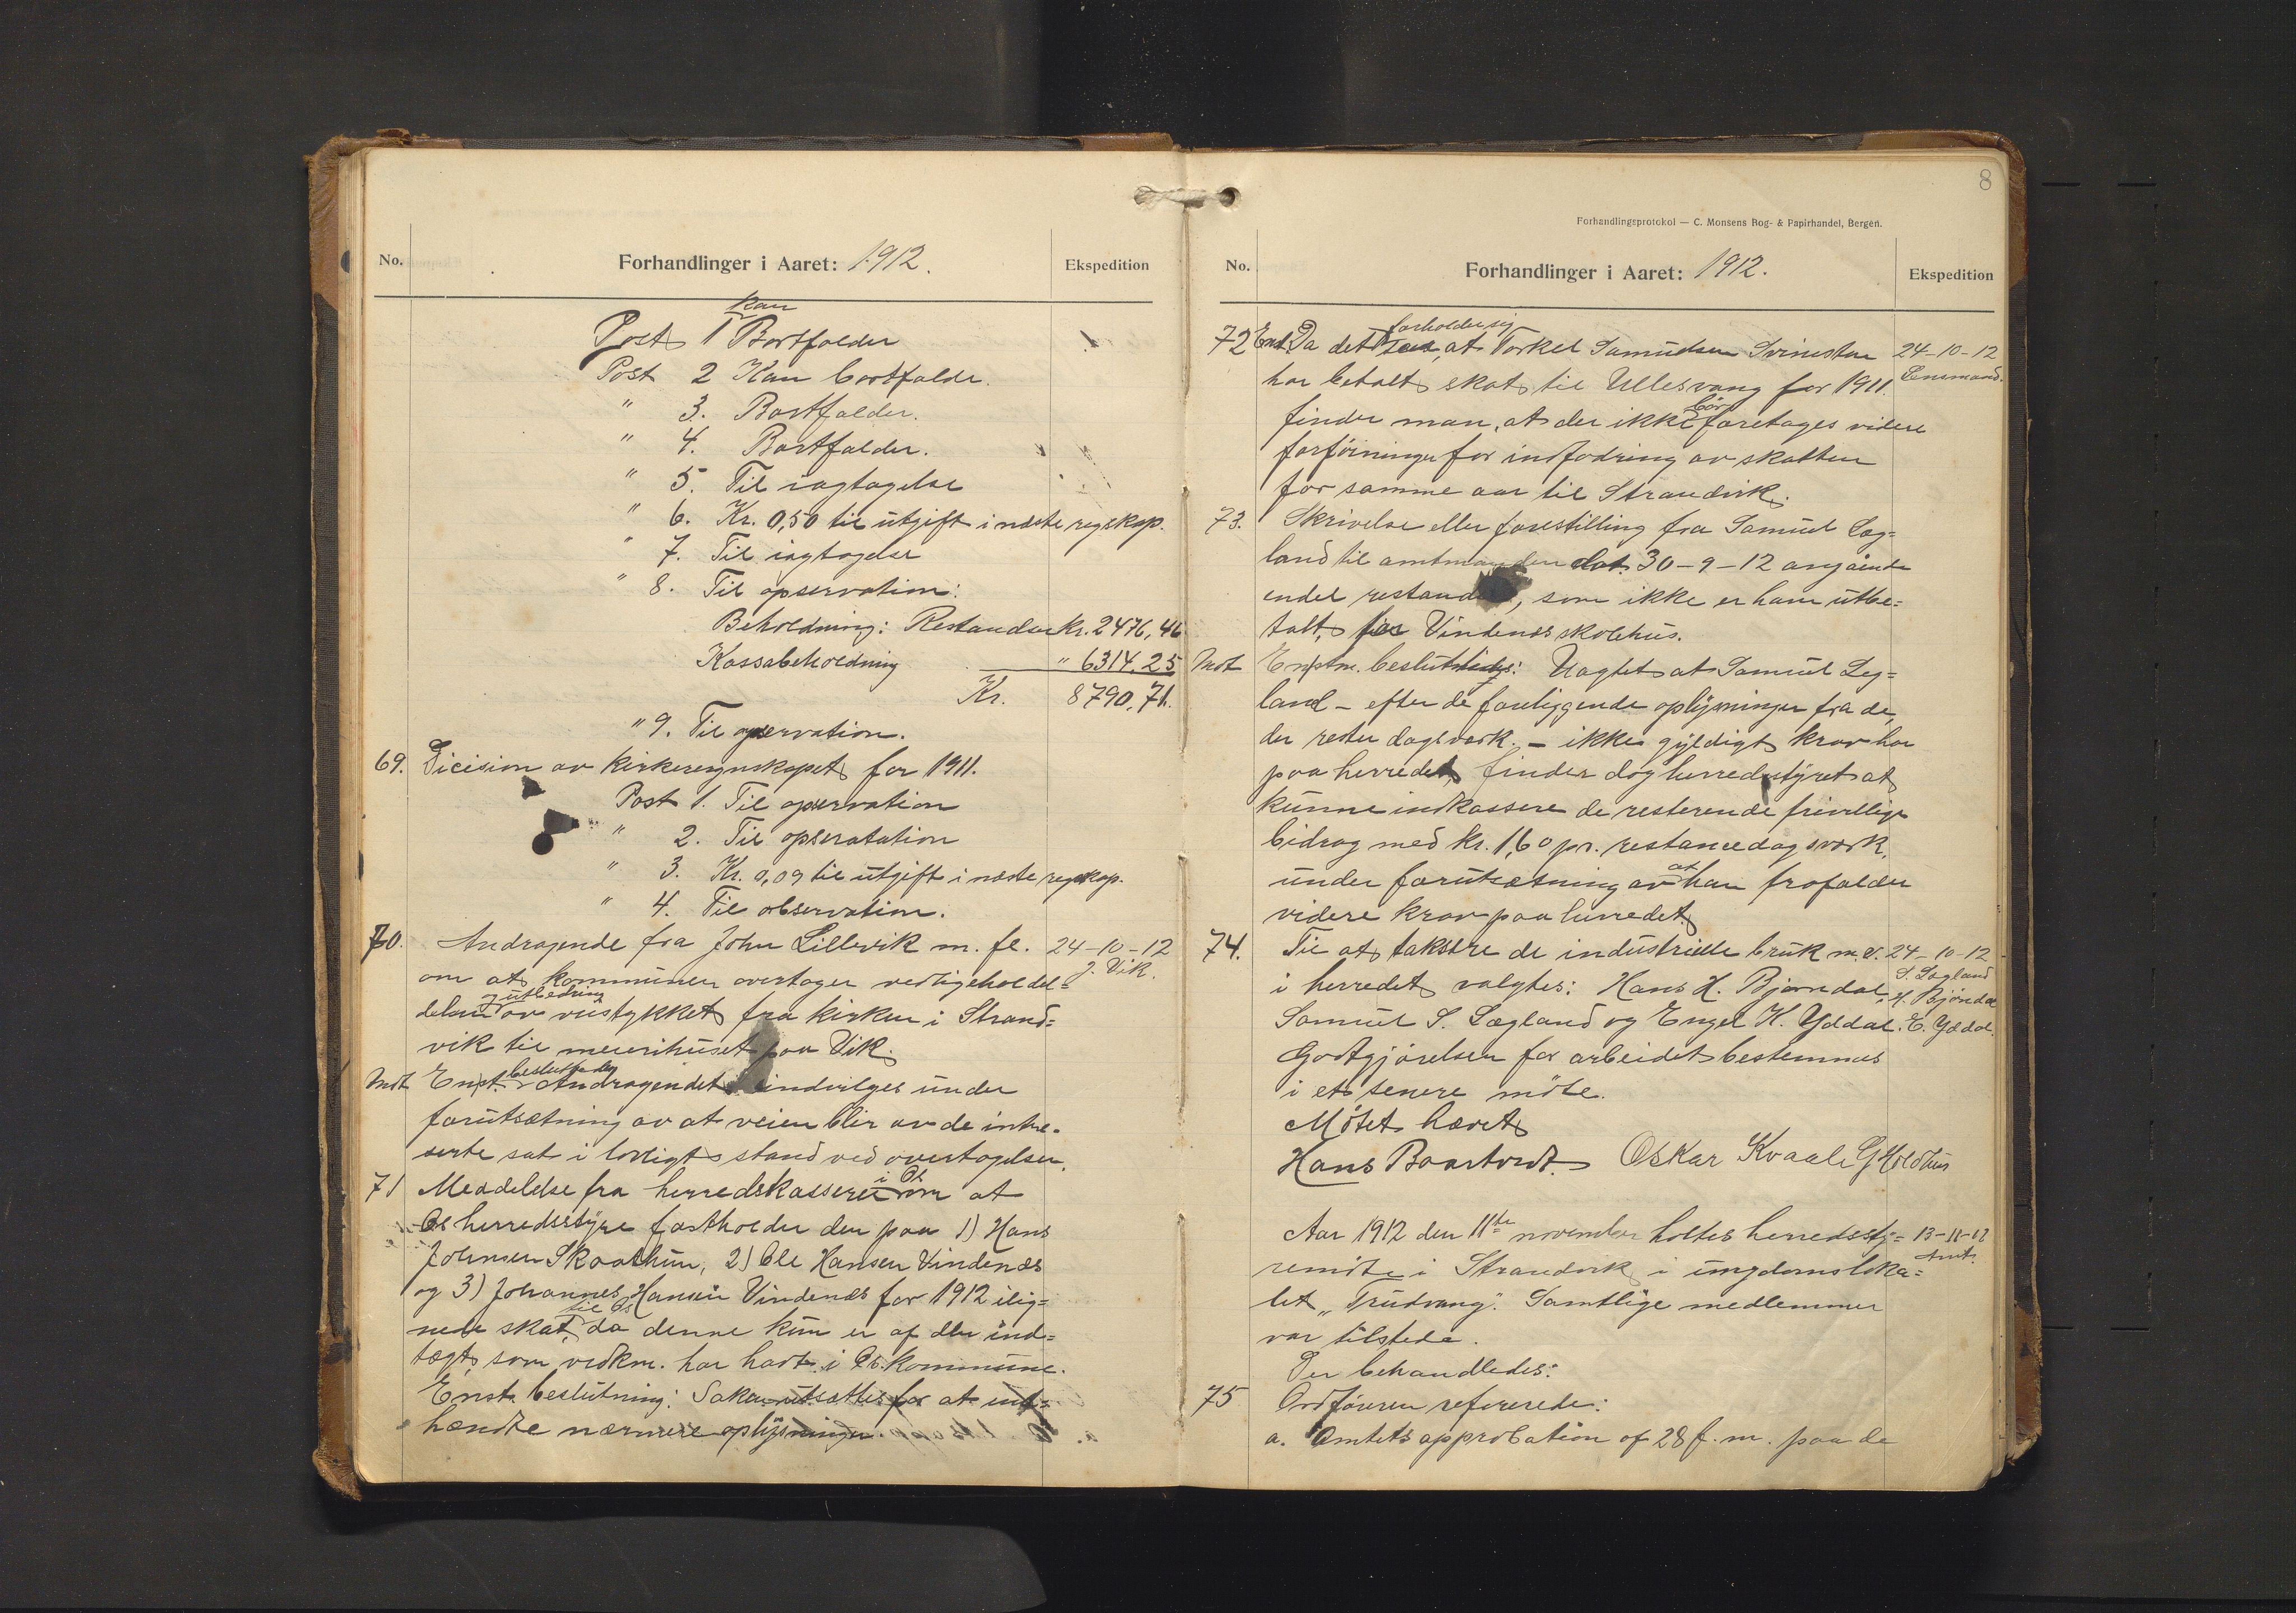 No.
Forhandlinger i Aaret: 1912.
Ekspedition
kan
Post 1 Bortfalder
Post 2 Kan bortfalde.
" 3. Bortfalder.
" 4. Bortfalder.
" 5. Til iagtagelse
" 6. Kr. 0,50 til utgift i næste regskap.
" 7. Til iagtagelse
" 8. Til opservation:
Beholdning: Restanser Kr. 2476,46
Kassabeholdning " 6314,25
Kr. 8790,71.
" 9. Til opservation.
69. Dicision av kirkeregnskapet for 1911.
Post 1. Til opservation
" 2. Til opseratation
" 3. Kr. 0,09 til utgift i næste regskap.
" 4. Til observation.
70. Andragende fra John Lillevik m. fl. 24-10-12
om at kommunen overtager vedligeholdel= J. Vik.
og utbedring
delsen av veistykket fra kirken i Strand=
vik til meierihuset paa Vik.
besluttedes
Mot Enst. Andragendet indvilges under
forutsætning av at veien blir av de intre-
serte sat i lovligt stand ved overtagelsen.
i Os
71 Meddelelse fra herredskasseren om at
Os herredsstyre fastholder den paa 1) Hans
Johnsen Skaathun, 2) Ole Hansen Vindenes
og 3) Johannes Hansen Vindenes for 1912 ilig=
til Os
nede skat, da denne kun er af den ind=
tægt som vedkm. har havt i Os kommune.
Enst. beslutning: Saken utsættes for at ind=
hændte nærmere oplysninger.
8
Forhandlingsprotokol — C. Monsens Bog- & Papirhandel, Bergen.
No.
Forhandlinger i Aaret: 1912.
Ekspedition
forholder sig
72 Enst. Da det at Torkel Samudsen 24-10-12
har betalt skat til Ullesvang for 1911. Lensmand.
bör
finder man, at der ikke foretages videre
forföininger for indfodring av skatten
for samme aar til Strandvik.
73. Skrivelse eller forestilling fra Samuel Læg=
land til amtmanden dat. 30-9-12 angående
endel restancer, som ikke er ham utbe=
talt, Vindenes skolehus.
Mot Enstm. beslut: Uagtet at Samuel Leg=
land - efter de foreliggende oplysninger fra de,
der rester dagsverk - ikke gyldigt krav har
paa herredet, finder dog herredsstyret at
kunne indkassere de resterende frivillige
bidrag med kr. 1,60 pr. restancedagsverk,
at
under forutsætning av han frafalder
videre krav paa herredet.
74. Til at taksere de industrielle bruk m.v. 24-10-12
S. Lægland
i herredet valgtes: Hans H. Bjørndal, H. Bjöndal
Samuel S. Lægland og Engel K. Yddal. E. Yddal.
Godtgjörelsen for arbeidet bestemmes
i et senere möte.
Mötet hævet
Hans Baartvedt. Oskar Kvaale G Holdhus
Aar 1912 den 11te november holtes herredssty= 13-11-12
Amt.
remöte i Strandvik i ungdomsloka=
let „Trudvang". Samtlige medlemmer
var tilstede.
Der behandledes:
75 Ordföreren refererede:
a. Amtets approbation af 28 f. m. paa de